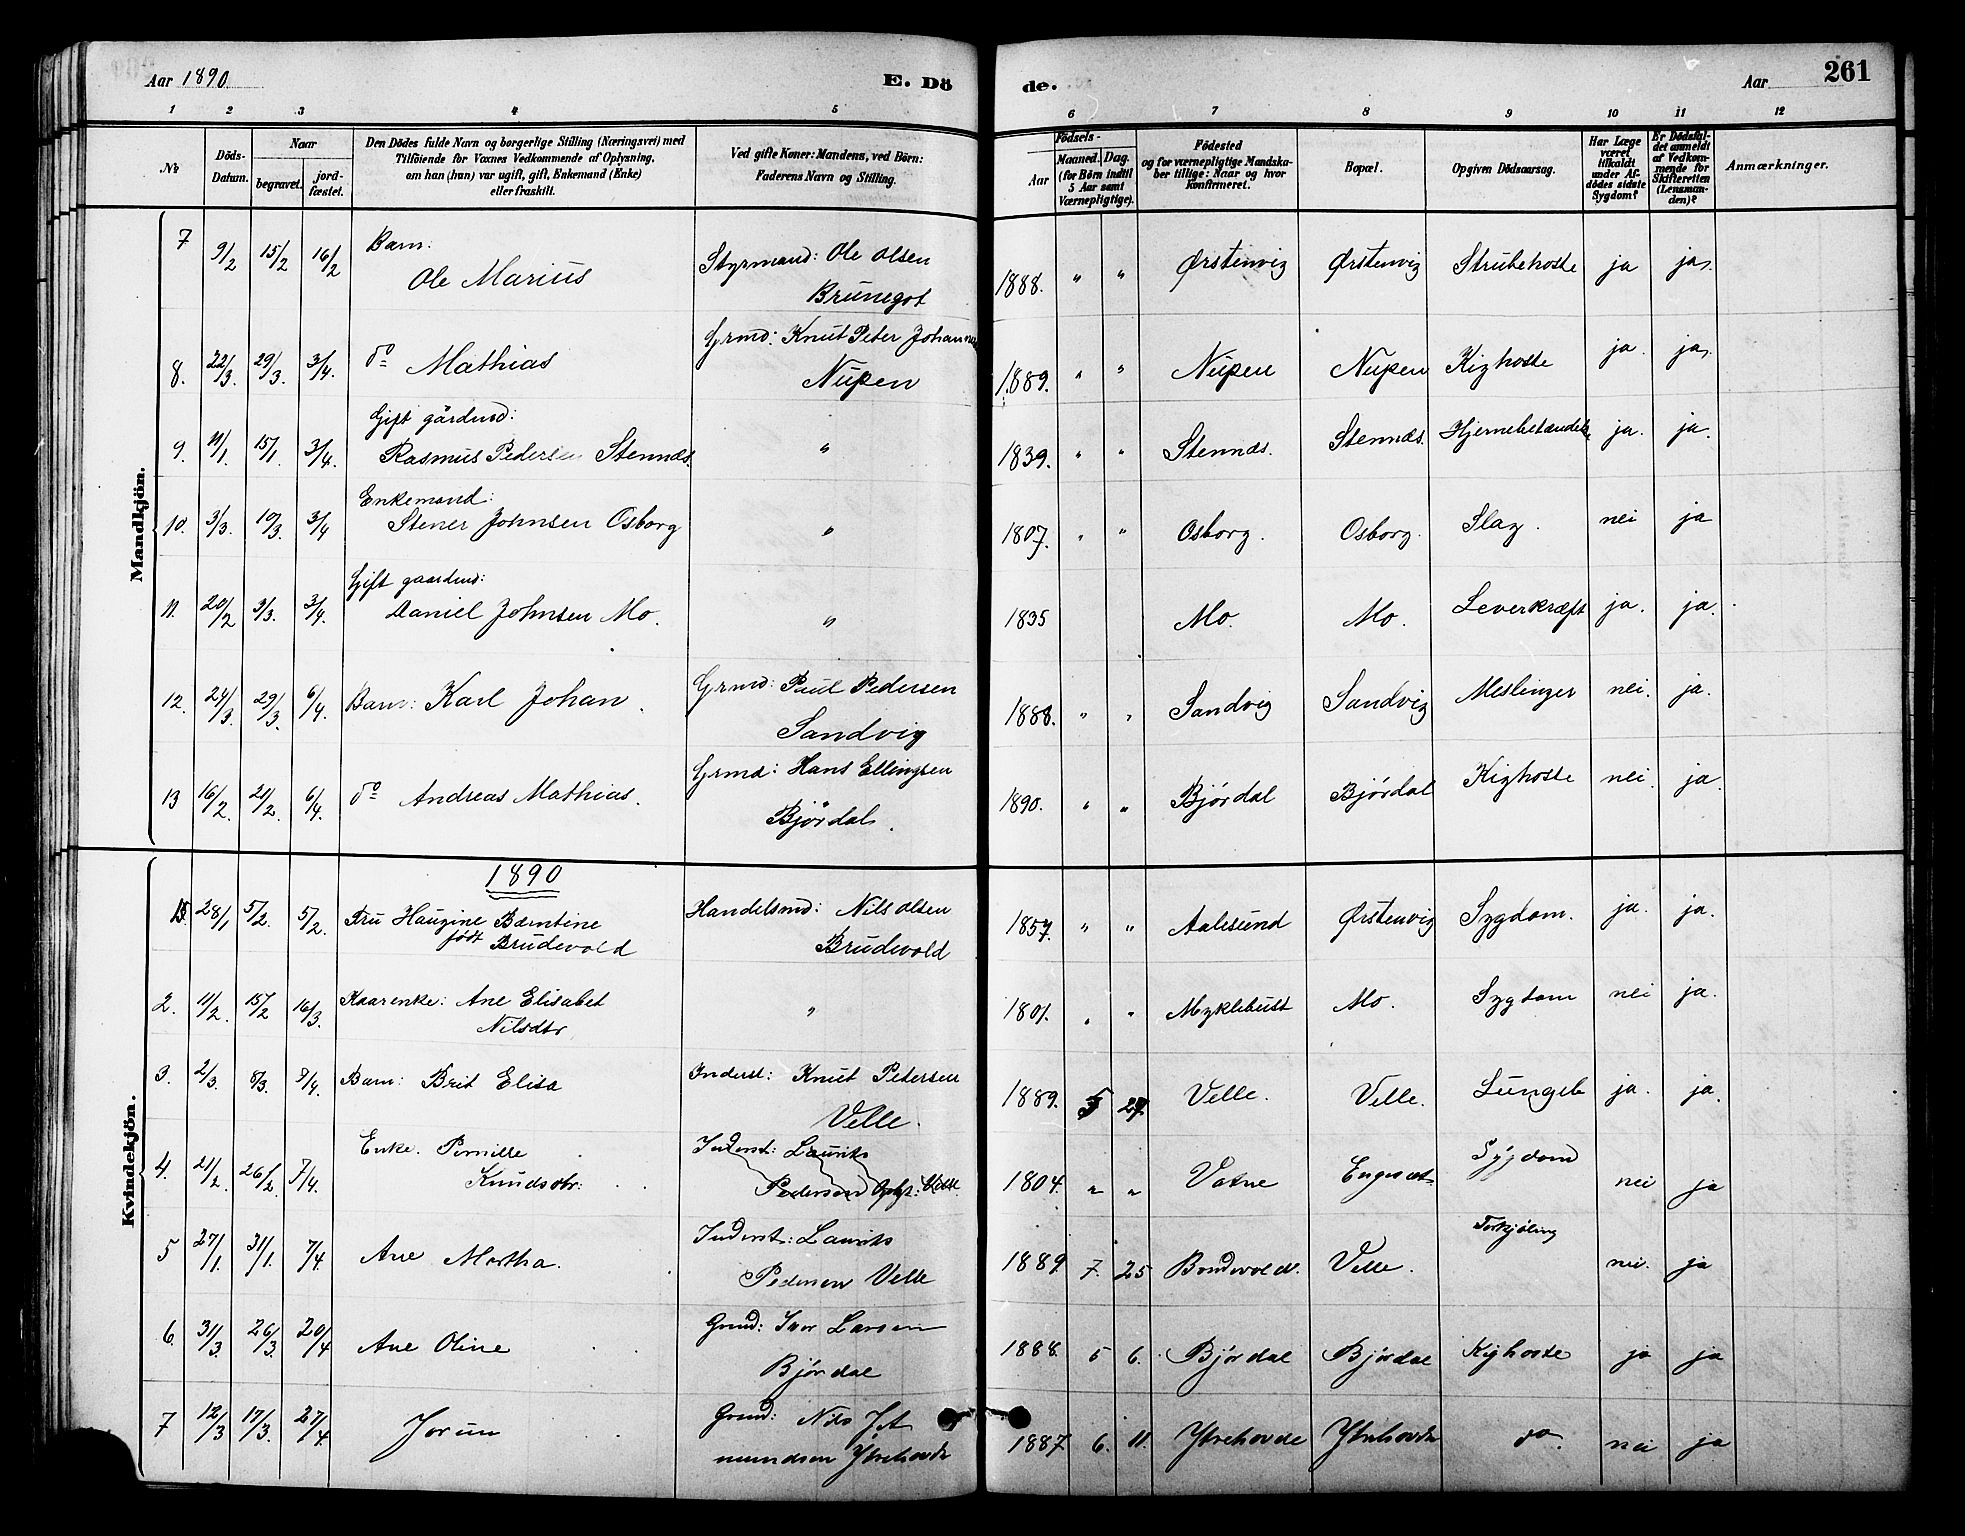 Aar 1890.
E. Dö
de.
Aar
261
1 2 3 4 5 6 7 8 9 10 11 12
No
Döds-Datum.
Naar
begravet.
jord-fæstet.
Den Dödes fulde Navn og borgerlige Stilling (Næringsvei) med
Tilföiende for Voxnes Vedkommende af Oplysning,
om han (hun) var ugift, gift, Enkemand (Enke)
eller fraskilt.
Ved gifte Koner: Mandens, ved Börn:
Faderens Navn og Stilling.
Födsels-
Aar
Maaned. Dag.
(for Börn indtil
5 Aar samt
Værnepligtige).
Födested
og for værnepligtige Mandska-
ber tillige: Naar og hvor
konfirmeret.
Bopæl.
Opgiven Dödsaarsag.
Har Læge
været
tilkaldt
under Af-
dödes sidste
Sygdom?
Er Dödsfal-
det anmeldt
af Vedkom-
mende for
Skifteretten
(Lensman-
den)?
Anmærkninger.
Mandkjön.
7 9/2 15/2 16/2 Barn: Styrmand: Ole Olsen 1888. " " Ørstenvig Ørstenvig Strubehoste ja ja.
Ole Marius Brunegot
8. 22/3. 29/3. 3/4. do Mathias Grmd: Knut Peter Johannes 1889. " " Nupen Nupen Kighoste ja. ja.
Nupen
Gift gårdmd:
9. 11/1. 15/1. 3/4. Rasmus Pedersen Stennes. " 1839. " " Stennes. Stennes. Hjernebetændelse ja. ja.
Enkemand:
10. 3/3. 10/3. 3/4 Stener Johnsen Osborg " 1807. " " Osborg. Osborg. Slag. nei ja
Gift gaardmd:
11. 20/2 3/3. 3/4. Daniel Johnsen Mo. " 1835 Mo. Mo. Leverkræft ja. ja.
12. 24/3. 29/3. 6/4. Barn: Karl Johan. Grmd: Paul Pedersen 1888. " " Sandvig Sandvig Meslinger nei. ja.
Sandvig
13 16/2. 21/2. 6/4. do Andreas Mathias. Grmd: Hans Ellingsen 1890. " " Bjørdal Bjørdal Kighoste nei. ja.
Bjørdal.
Kvindekjön.
1890
28/1 5/2. 5/2. Fru Haugine Berntine Handelsmd: Nils Olsen 1857. " " Aalesund Ørstenvig Sygdom. ja. ja.
født Brudevold Brudevold
2. 11/2. 15/2 16/3. Kaarenke: Ane Elisabet " 1801. " " Myklebust Mo. Sygdom nei ja.
Nilsdtr
3. 2/3. 8/3. 7/4. Barn: Brit Elisa Inderst: Knut Pedersen 1889. 5 27. Velle. Velle. Lungeb ja. ja.
Velle.
4. 21/2. 26/2. 7/4. Enke. Pernille Inderst: Laurits 1804. " " Vatne Engeset Sygdom nei ja
Knudsdtr: Pedersen Velle
5 27/1. 31/1. 7/4. Ane Martha. Inderst: Laurits 1889 7. 25 Bondevold. Velle. Forkjøling nei. ja
Pedersen Velle
6. 31/3. 26/3. 20/4 Ane Oline Grmd: Iver Larsen 1888. 5 6. Bjørdal Bjørdal Kighoste ja ja
Bjørdal
7 12/3 17/3. 27/4. Jorun Grmd: Nils Jet 1887 6. 11. Ytrehovde Ytrehovde do. nei ja
mundsen Ytrehovde